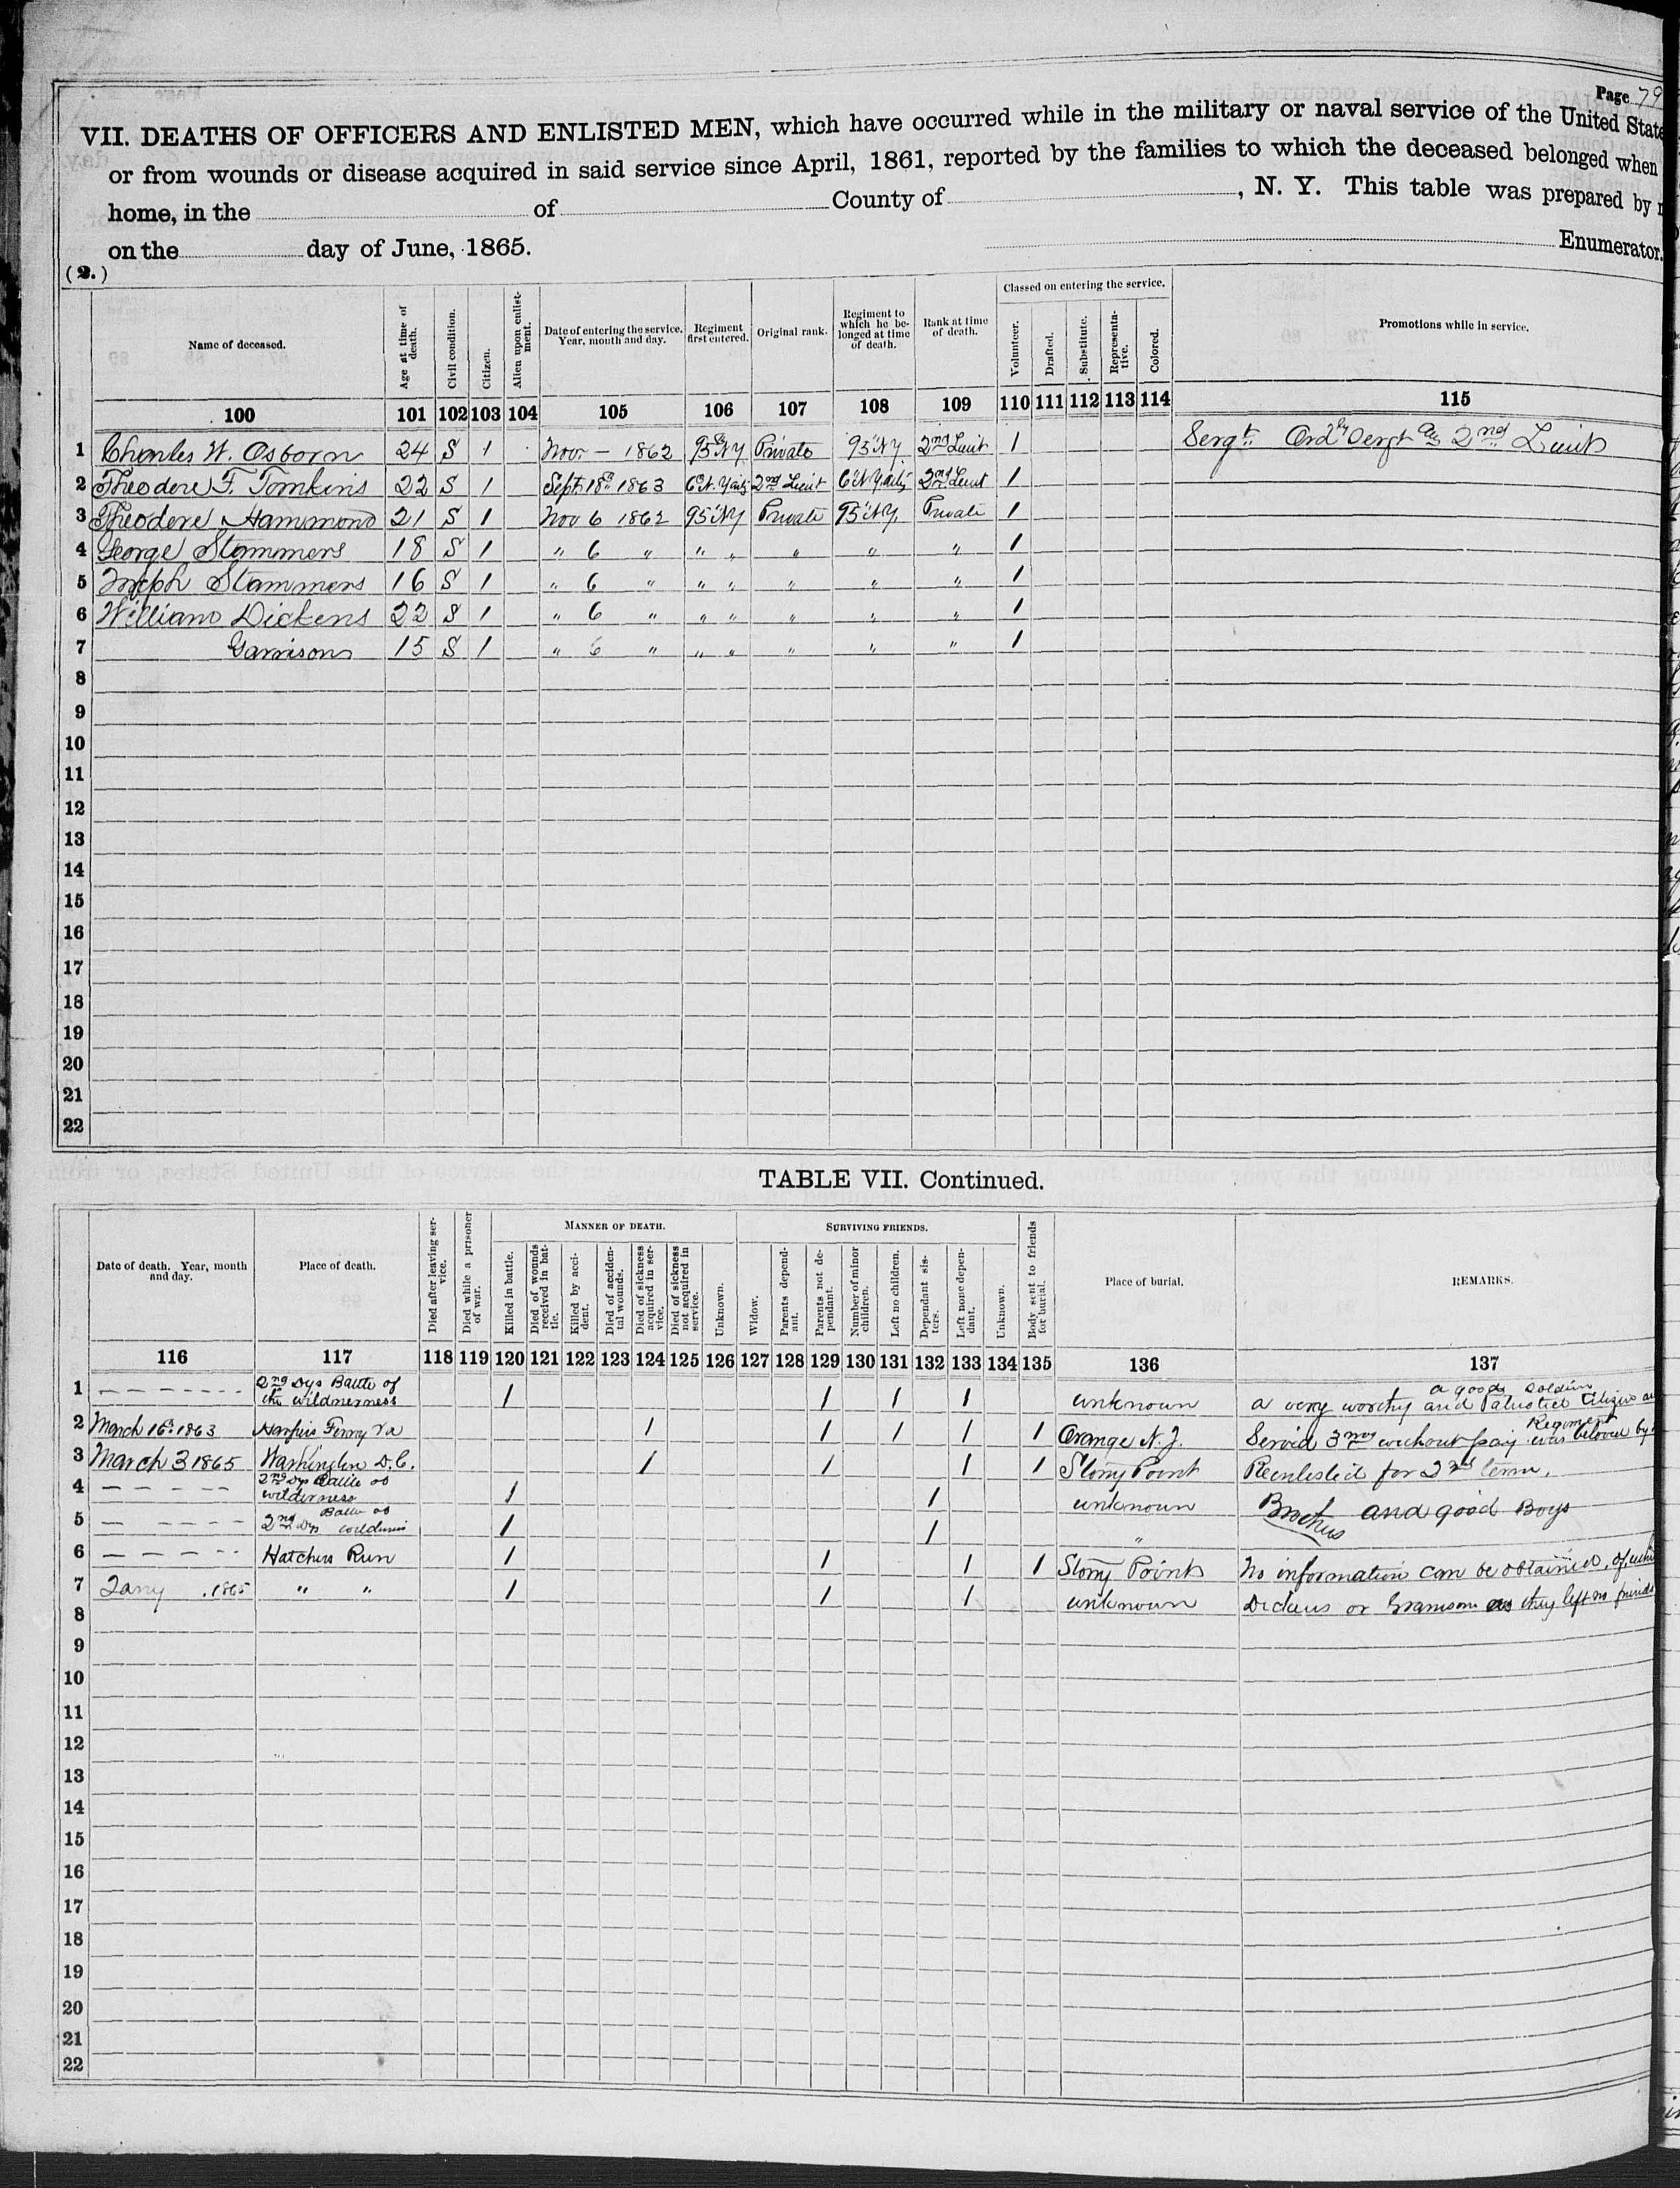 Page 79
VII. DEATHS OF OFFICERS AND ENLISTED MEN, which have occurred while in the military or naval service of the United State
or from wounds or disease acquired in said service since April, 1861, reported by the families to which the deceased belonged when
home, in the of County of , N. Y. This table was prepared by
on the day of June, 1865. Enumerator.
(2.)
Name of deceased. Age at time of death. Civil condition. Citizen. Alien upon enlistment. Date of entering the service. Year, month and day. Regiment first entered. Original rank. Regiment to which he belonged at time of death. Rank at time of death. Classed on entering the service. Volunteer. Drafted. Substitute. Representative. Colored. Promotions while in service.
100 101 102 103 104 105 106 107 108 109 110 111 112 113 114 115
1 Charles W. Osborn 24 S 1 Nov - 1862 95 NY Private 95 NY 2nd Lieut 1 Sergt Ordly Sergt 2nd Lieut
2 Theodore F. Tomkins 22 S 1 Sept 18 1863 6 N.Y 2nd Lieut 6 NY 2nd Lieut 1
3 Theodore Hammond 21 S 1 Nov 6 1862 95 NY Private 95 NY Private 1
4 George Stammers 18 S 1 " 6 " " " " " " 1
5 Joseph Stammers 16 S 1 " 6 " " " " " " 1
6 William Dickens 22 S 1 " 6 " " " " " " 1
7 Garrison 15 S 1 " 6 " " " " " " 1
8
9
10
11
12
13
14
15
16
17
18
19
20
21
22
TABLE VII. Continued.
Date of death. Year, month and day. Place of death. Died after leaving service. Died while a prisoner of war. MANNER OF DEATH. Killed in battle. Died of wounds received in battle. Killed by accident. Died of accidental wounds. Died of sickness acquired in service. Died of sickness not acquired in service. Unknown. SURVIVING FRIENDS. Widow. Parents dependant. Parents not dependant. Number of minor children. Left no children. Dependant sisters. Left none dependant. Unknown. Body sent to friends for burial. Place of burial. REMARKS.
116 117 118 119 120 121 122 123 124 125 126 127 128 129 130 131 132 133 134 135 136 137
1 - - - - - - 2nd Dys Battle of the wilderness 1 1 1 1 unknown a very worthy and Patriotic Citizen a good soldier
2 March 16 1863 Harpers Ferry Va 1 1 1 1 1 Orange N. J. Served 3 mos without pay was beloved by Regiment
3 March 3 1865 Washington D.C. 1 1 1 1 Stony Point Reenlisted for 2nd term.
4 - - - - - 2nd Dys Battle of wilderness 1 1 unknown Brothers and good Boys
5 - - - - - 2nd Dys Battle of wilderness 1 1 "
6 - - - - - Hatchers Run 1 1 1 1 Stony Point No information can be obtained, of
7 Jany 1865 " " 1 1 1 unknown Dickens or Garrison as they left no friends
8
9
10
11
12
13
14
15
16
17
18
19
20
21
22